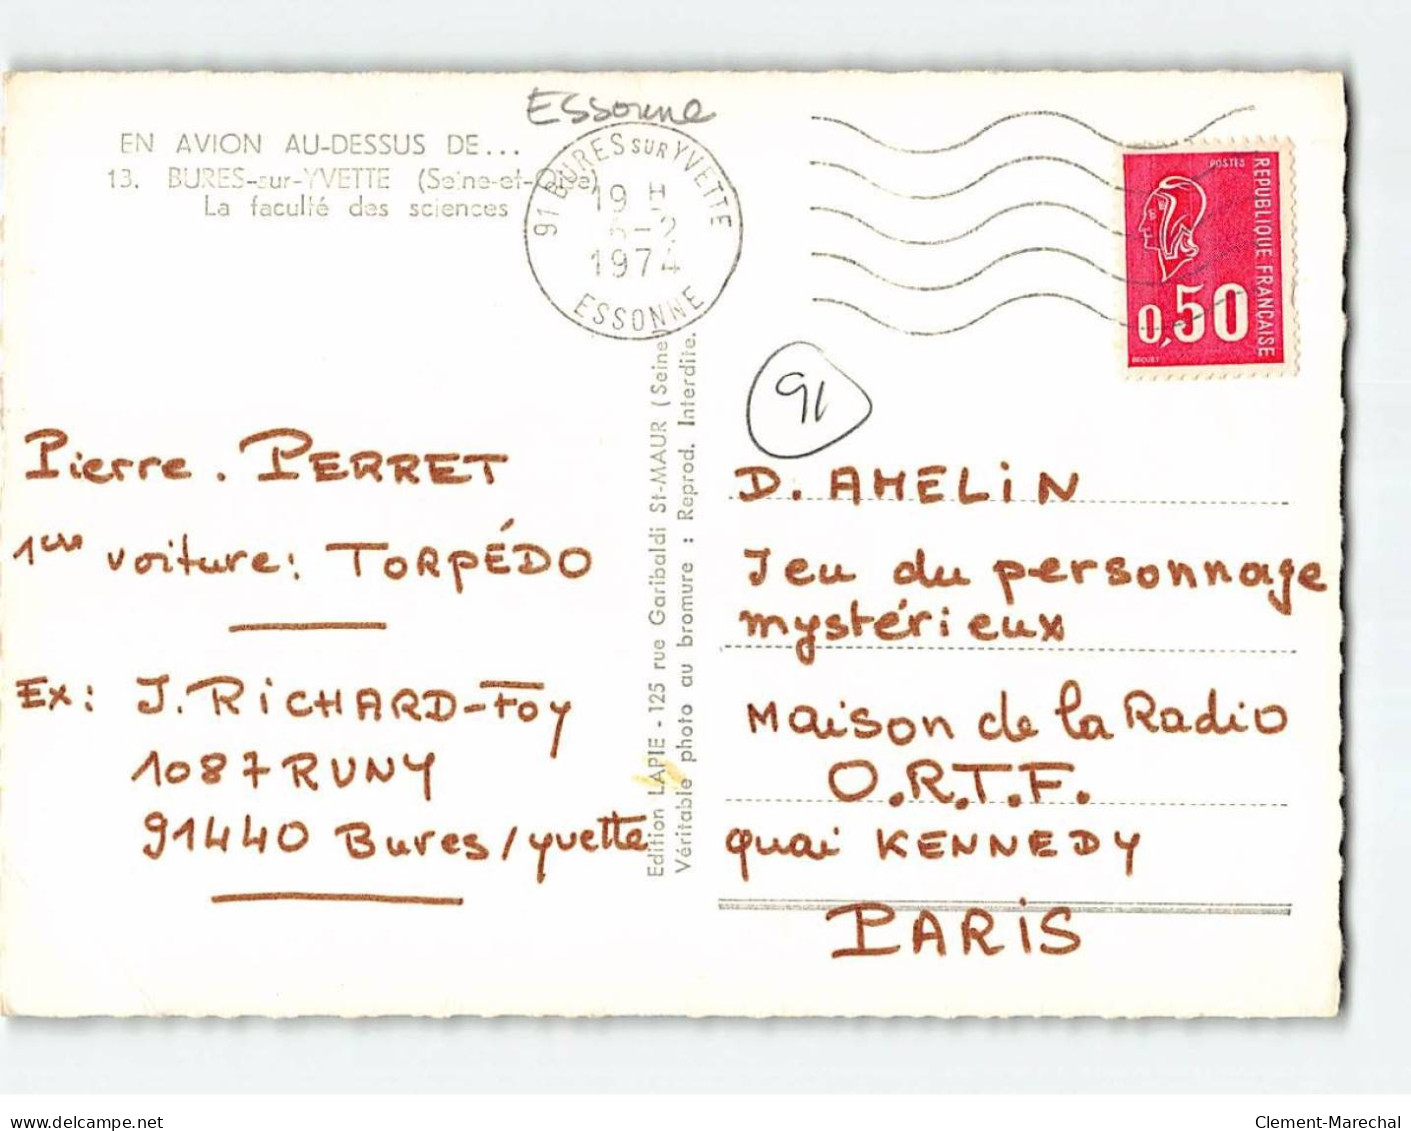 Essonne
EN AVION AU-DESSUS DE...
13. BURES-sur-YVETTE (Seine-et-Oise)
La faculté des sciences
91 BURES SUR YVETTE
19 H
5-2
1974
ESSONNE
POSTES
REPUBLIQUE FRANÇAISE
0,50
BEQUET
91
Pierre. PERRET
voiture: TORPÉDO
Ex: J. RICHARD-FOY
1087 RUNY
91440 Bures/yvette
Edition LAPIE - 125 rue Garibaldi St-MAUR (Seine)
Véritable photo au bromure : Reprod. Interdite.
D. AMELIN
Jeu du personnage
mystérieux
Maison de la Radio
O.R.T.F.
quai KENNEDY
PARIS
delcampe.net
Clement-Marechal